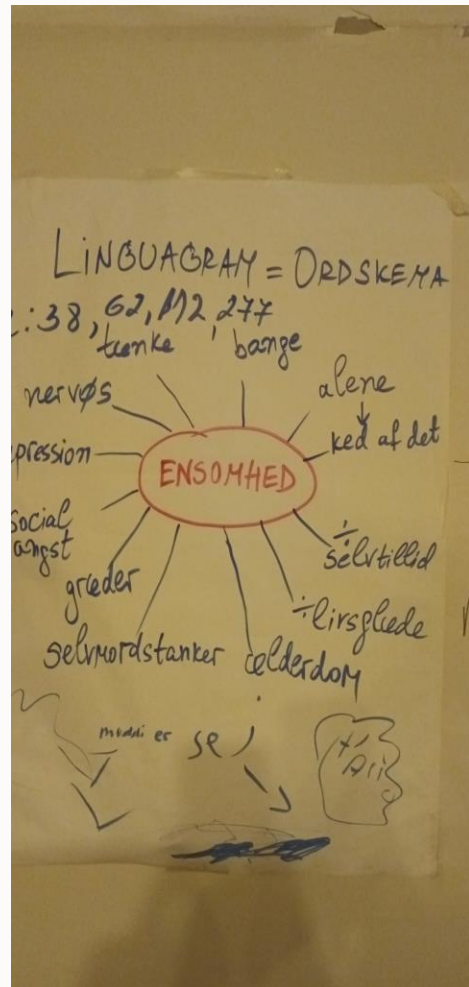 LINGUAGRAM = ORDSKEMA
:38, 62, 112, 277
tænke
bange
nervøs
alene
ked af det
pression
ENSOMHED
social
angst
÷
selvtillid
græder
÷livsglæde
selvmordstanker
ælderdom
er se
Ali